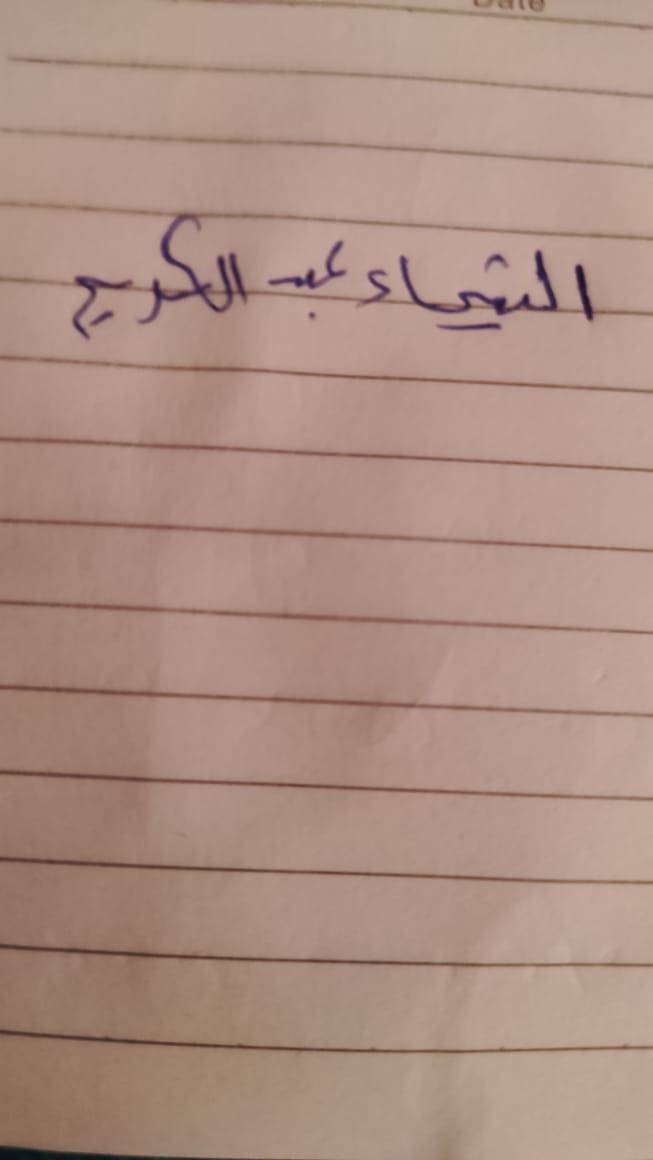 Date
الشيماء عبد الكريم